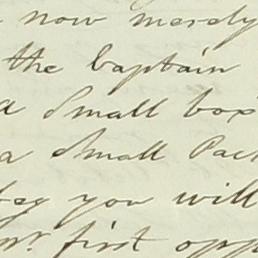 now merely
the Captain
a small box
a small Pac
beg you will
first opp